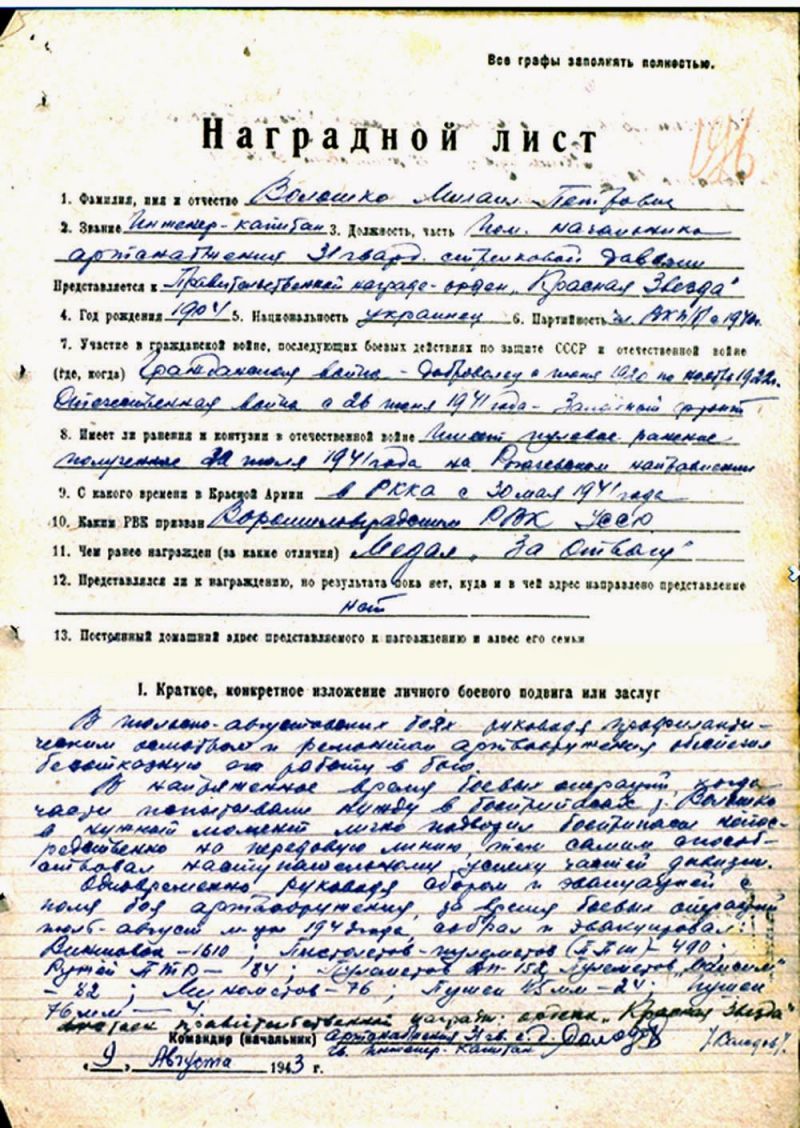 Все графы заполнять полностью.
Наградной лист
1. Фамилия, имя и отчество Волошко Михаил Петрович
2. Звание Инженер-капитан 3. Должность, часть Пом. начальника
артснабжения 31 гвард. стрелковой дивизии
Представляется к Правительственной награде - орден „Красная Звезда"
4. Год рождения 1904 5. Национальность украинец 6. Партийность чл. ВКП/б с 1940г.
7. Участие в гражданской войне, последующих боевых действиях по защите СССР и отечественной войне
(где, когда) Гражданская война - доброволец с июня 1920 по ноябрь 1922г.
Отечественная война с 26 июня 1941 года - Западный фронт
8. Имеет ли ранения и контузии в отечественной войне Имеет пулевое ранение
полученное июля 1941 года на Рогачевском направлении
9. С какого времени в Красной Армии в РККА с 30 мая 1941 года
10. Каким РВК призван Ворошиловградским РВК УССР
11. Чем ранее награжден (за какие отличия) Медаль „За Отвагу"
12. Представлялся ли к награждению, но результата пока нет, куда и в чей адрес направлено представление
нет
13. Постоянный домашний адрес представляемого к награждению и адрес его семьи
I. Краткое, конкретное изложение личного боевого подвига или заслуг
В июльско-августовских боях руководя профилакти-
ческим осмотром и ремонтом артвооружения обеспечил
безотказную его работу в бою.
В напряженное время боевых операций, когда
части испытывали нужду в боеприпасах т. Волошко
в нужный момент лично подвозил боеприпасы непос-
редственно на передовую линию, тем самым способ-
ствовал наступательному успеху частей дивизии.
Одновременно руководя сбором и эвакуацией с
поля боя артвооружения, за время боевых операций
июль-август м-цы 1943 года, собрал и эвакуировал:
Винтовок - 1610; Пистолетов-пулеметов (ППШ) - 490;
Ружей ПТР - 84; Пулеметов ДП- 152, Пулеметов „Максим"
- 82; Минометов - 76; Пушек 45 мм - 24; Пушек
76 мм - 4.
правительственной награды: ордена „Красная Звезда"
Командир (начальник) артснабжения 31 гв. с.д.
гв. инженер-капитан
„9" Августа 1943 г.